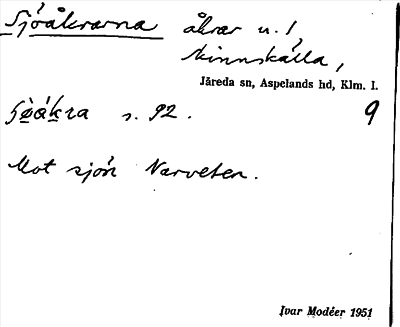 Sjöåkrarna åkrar u. 1,
Skinnskälla,
Järeda sn, Aspelands hd, Klm. l.
s. 92. 9
Mot sjön Narveten.
Ivar Modéer 1951